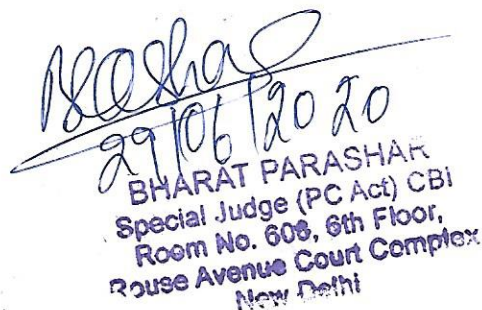 29/06/2020
BHARAT PARASHAR
Special Judge (PC Act) CBI
Room No. 608, 6th Floor,
Rouse Avenue Court Complex
New Delhi